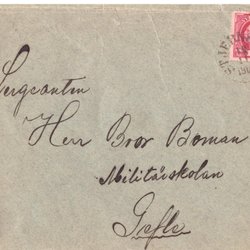 Sergeanten
Herr Bror Boman
Militärskolan
Gefle